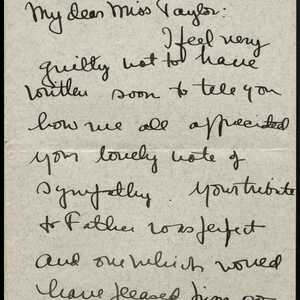 My dear Miss Taylor:
I feel very
guilty not to have
written soon to tell you
how we all appreciated
your lovely note of
sympathy. Your tribute
to Father was perfect
and one which would
have pleased him so